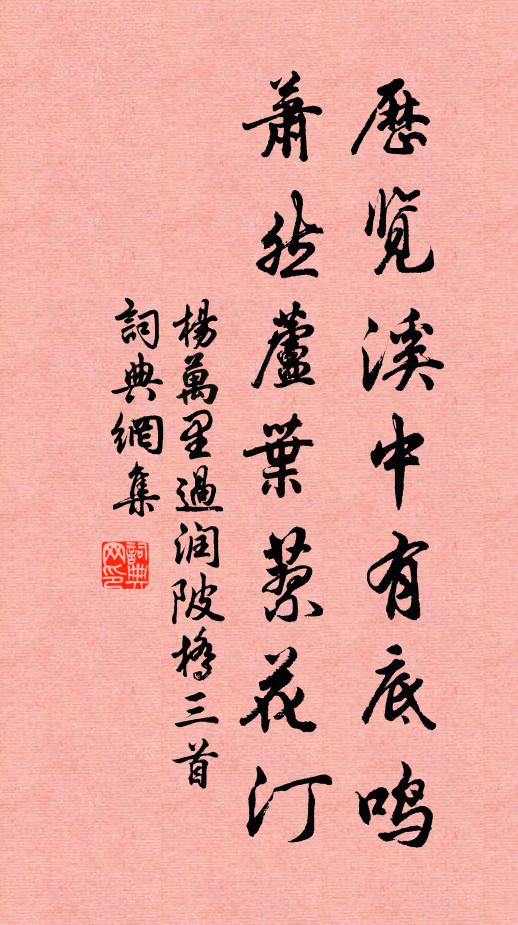 歷覽溪中有底鳴
蕭然蘆葉蓼花汀
楊萬里過润陂橋三首
詞典網集
詞典网印